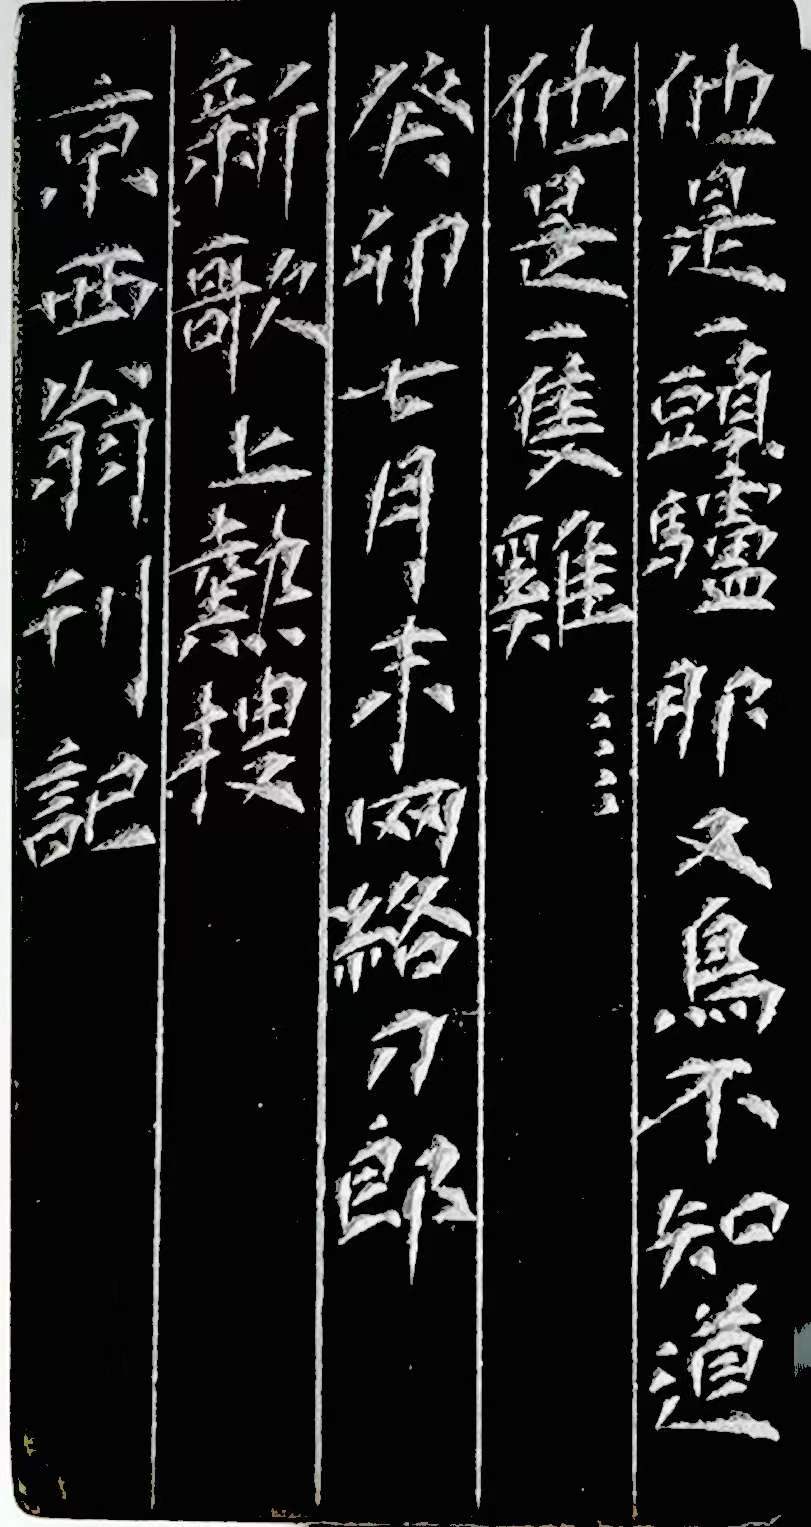 他是一頭驢那又鳥不知道
他是一隻雞⋯⋯
癸卯七月末网絡刀郎
新歌上熱搜
京西翁刊記